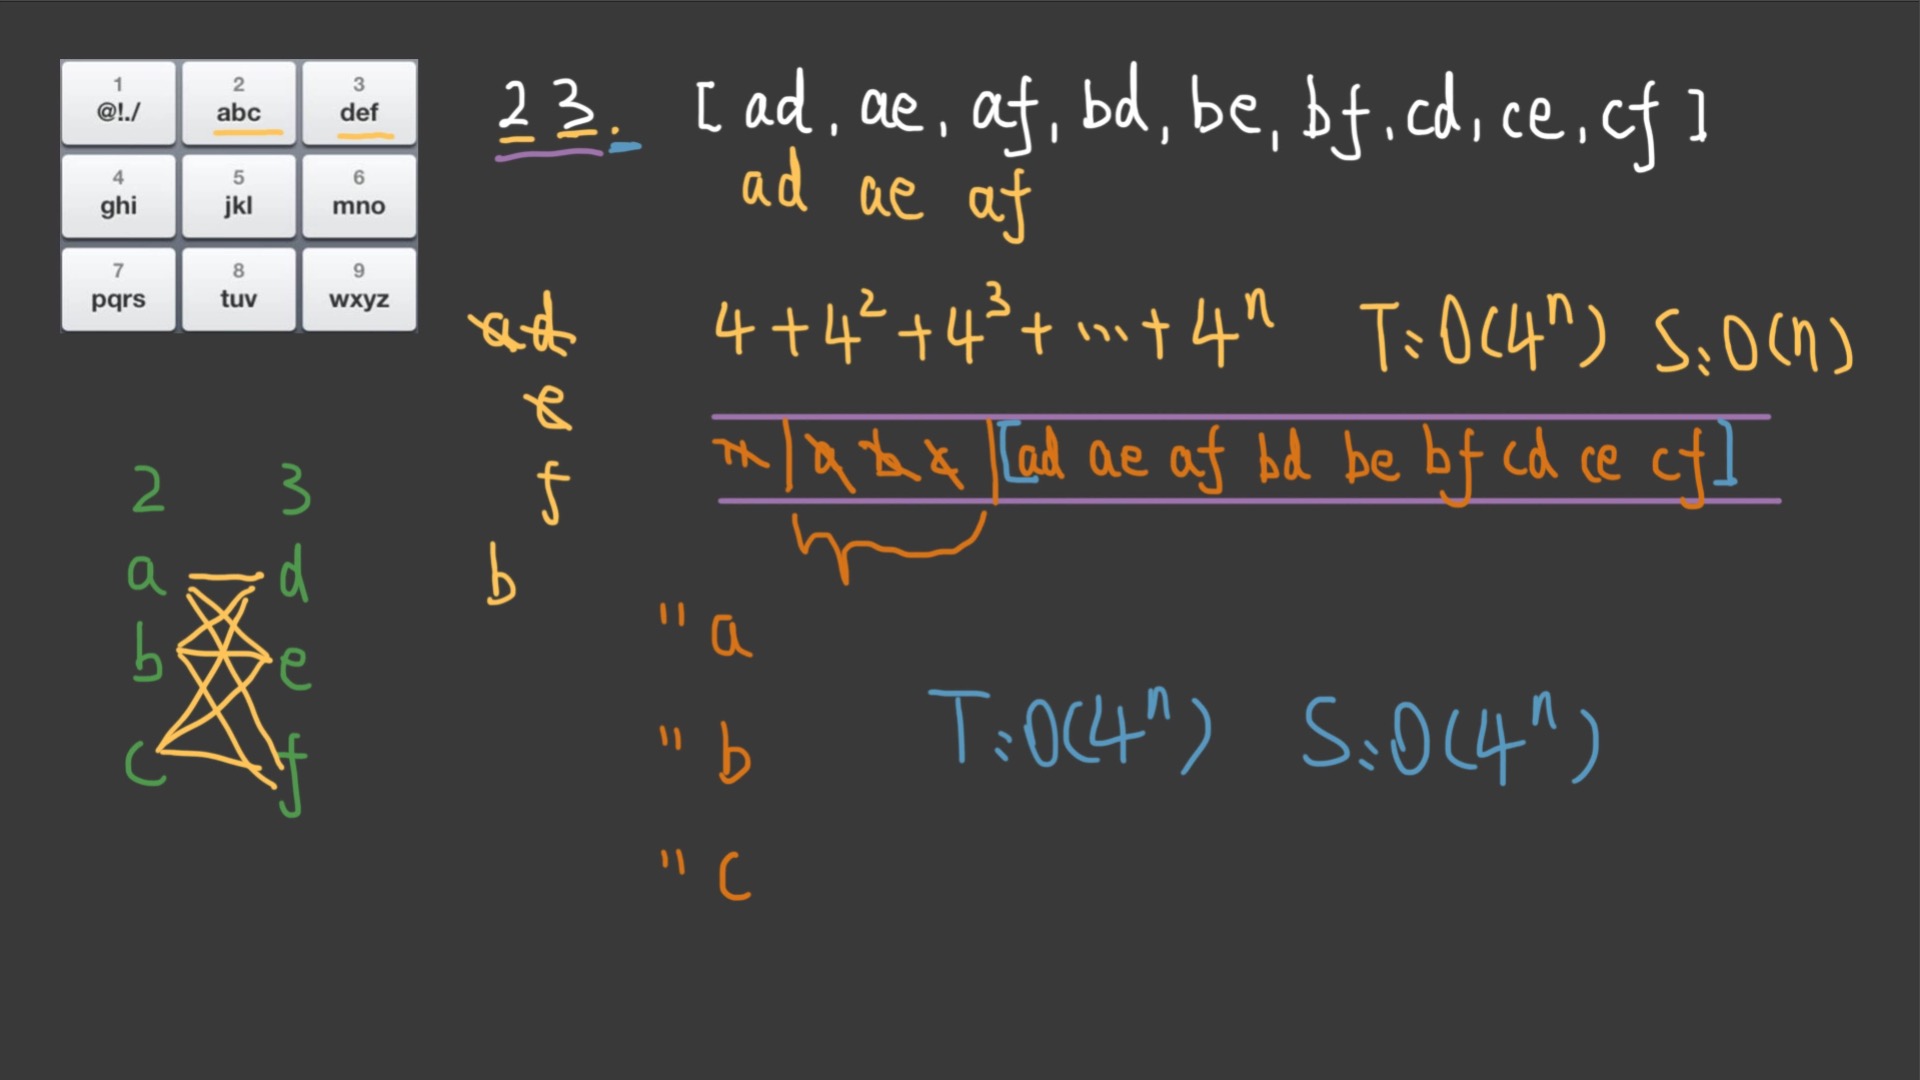 1 2 3
@!./ abc def
4 5 6
ghi jkl mno
7 8 9
pqrs tuv wxyz
23. [ad, ae, af, bd, be, bf, cd, ce, cf]
ad ae af
ad
e
f
b
4+4²+4³+...+4ⁿ T:O(4ⁿ) S:O(n)
a b c [ad ae af bd be bf cd ce cf]
2 3
a d
b e
c f
" a
" b
" c
T:O(4ⁿ) S:O(4ⁿ)